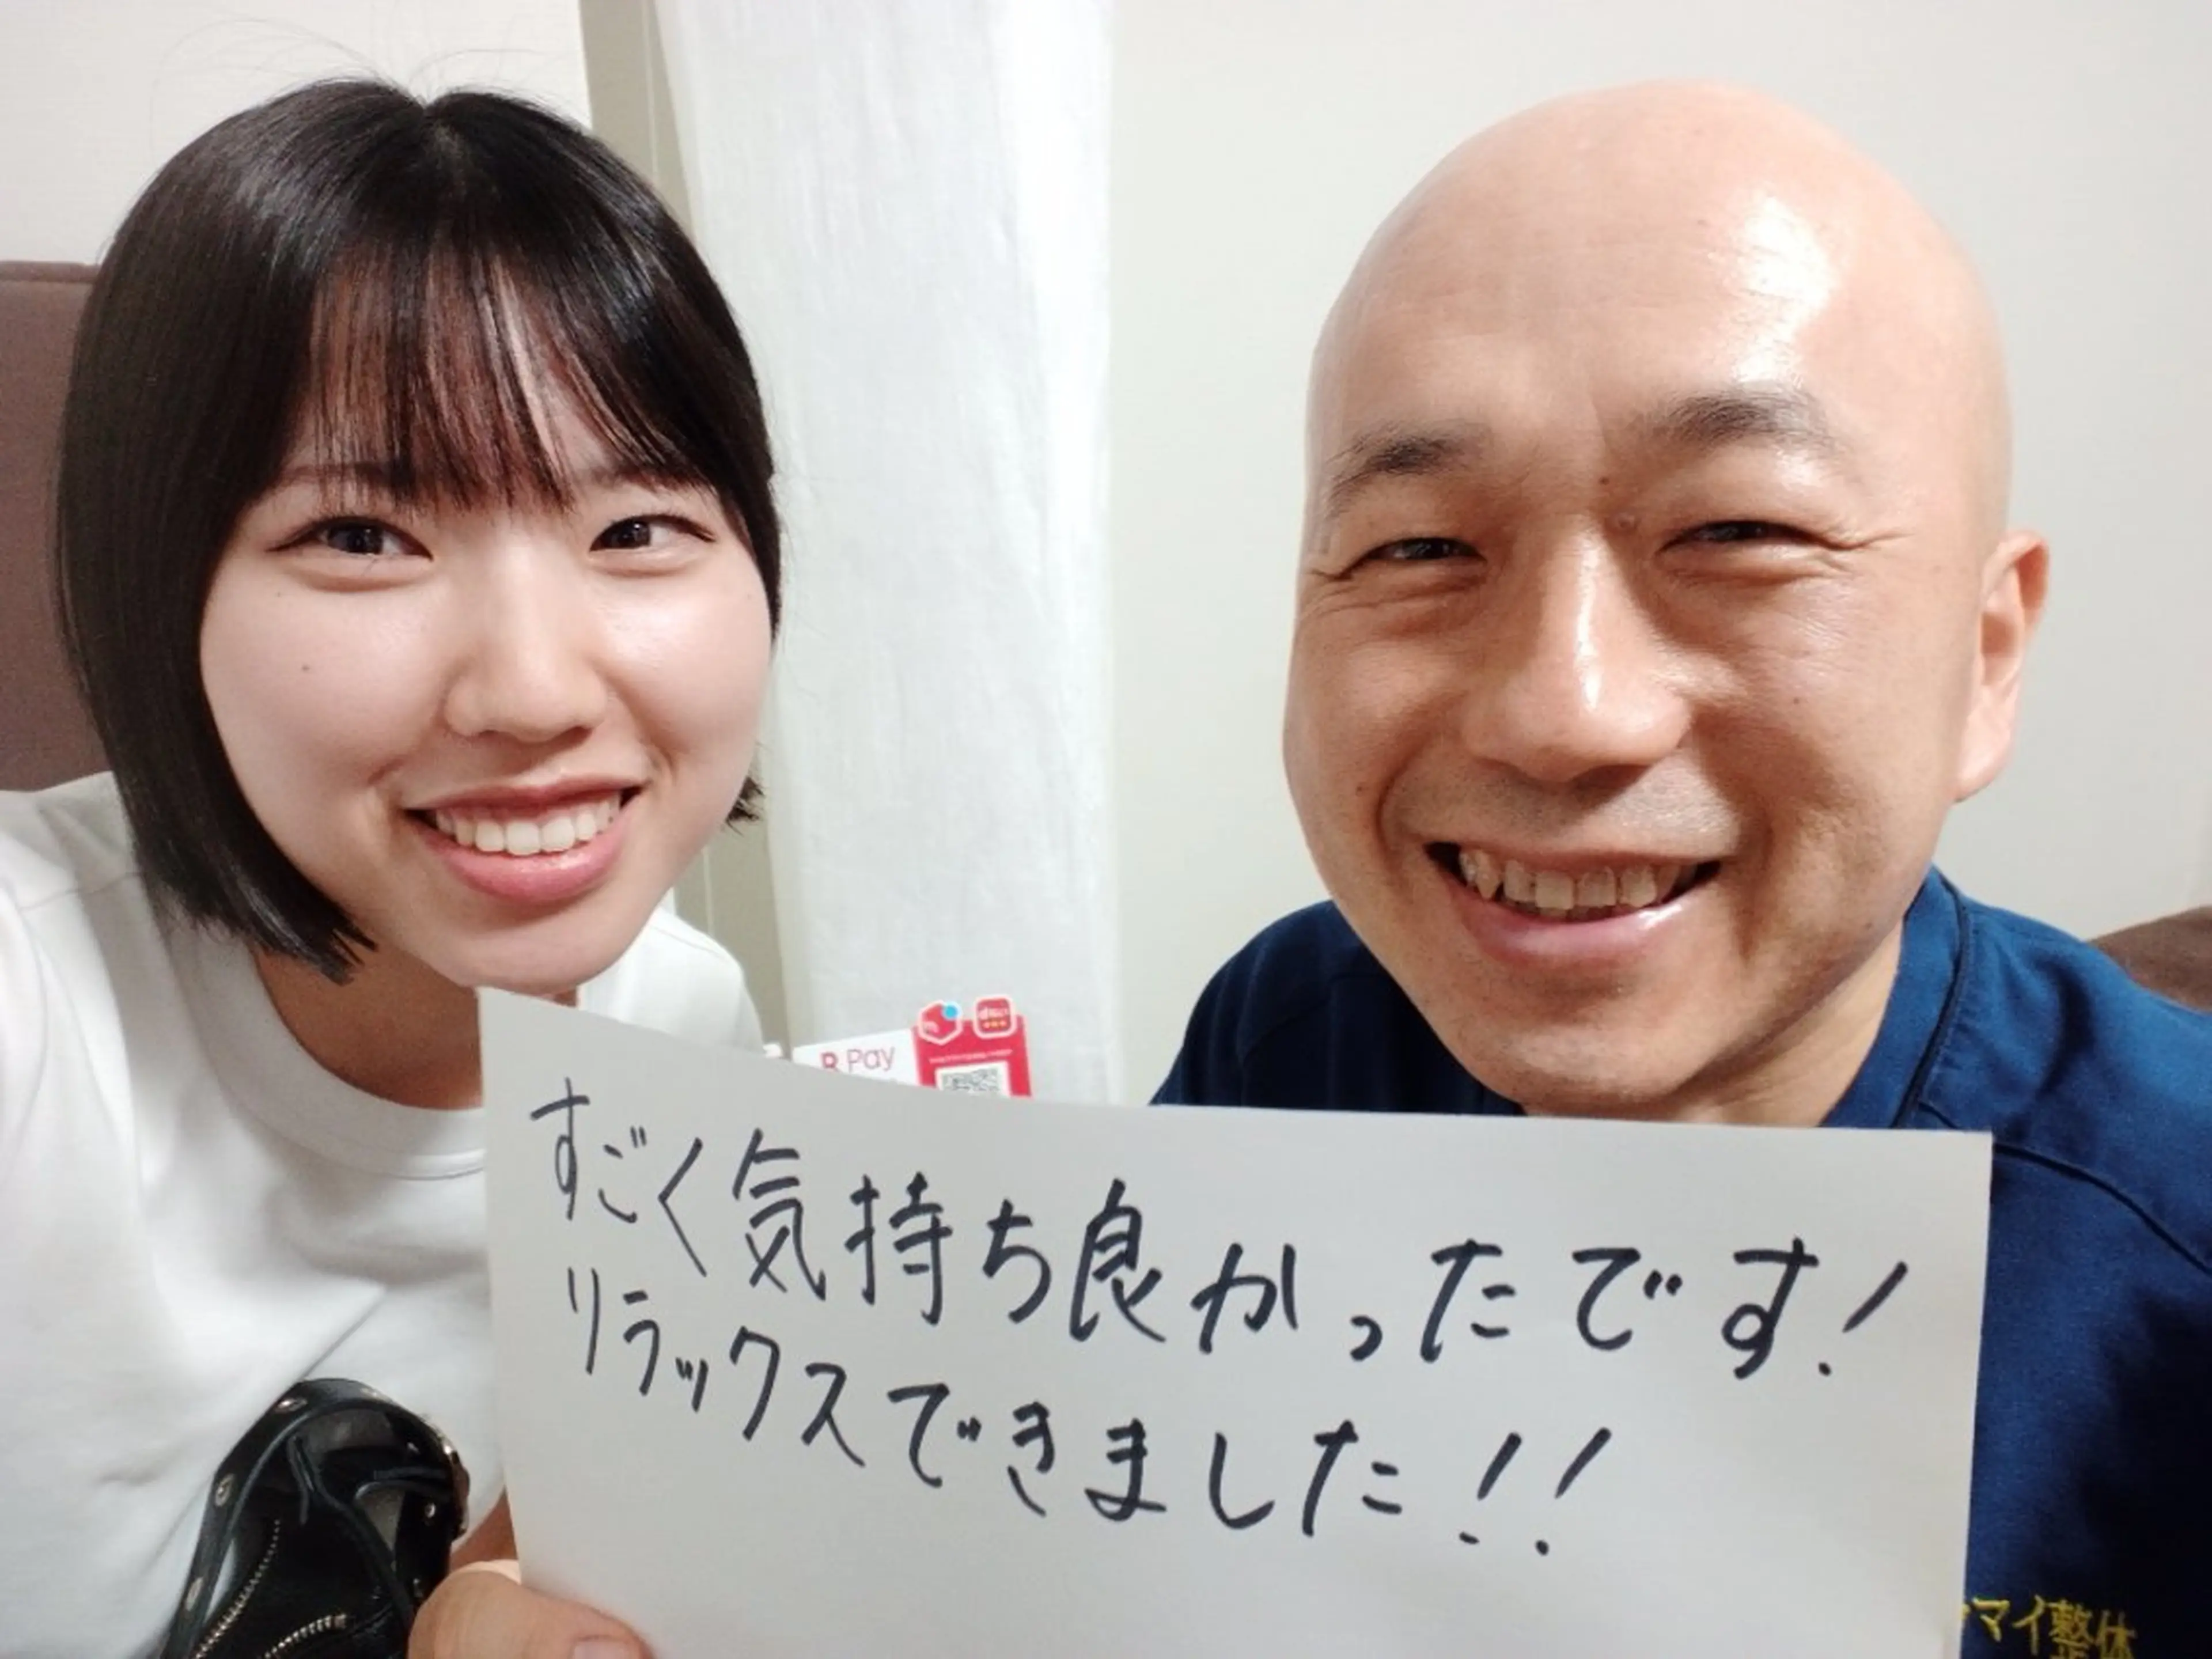 R Pay
すごく気持ち良かったです!
リラックスできました!!
マイ整体